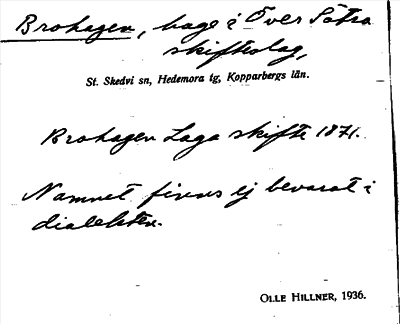 Brohagen, hage i Över Sätra
skifteslag,
St. Skedvi sn, Hedemora tg, Kopparbergs län.
Brohagen Laga skifte 1871.
Namnet finns ej bevarat i
dialekten.
OLLE HILLNER, 1936.